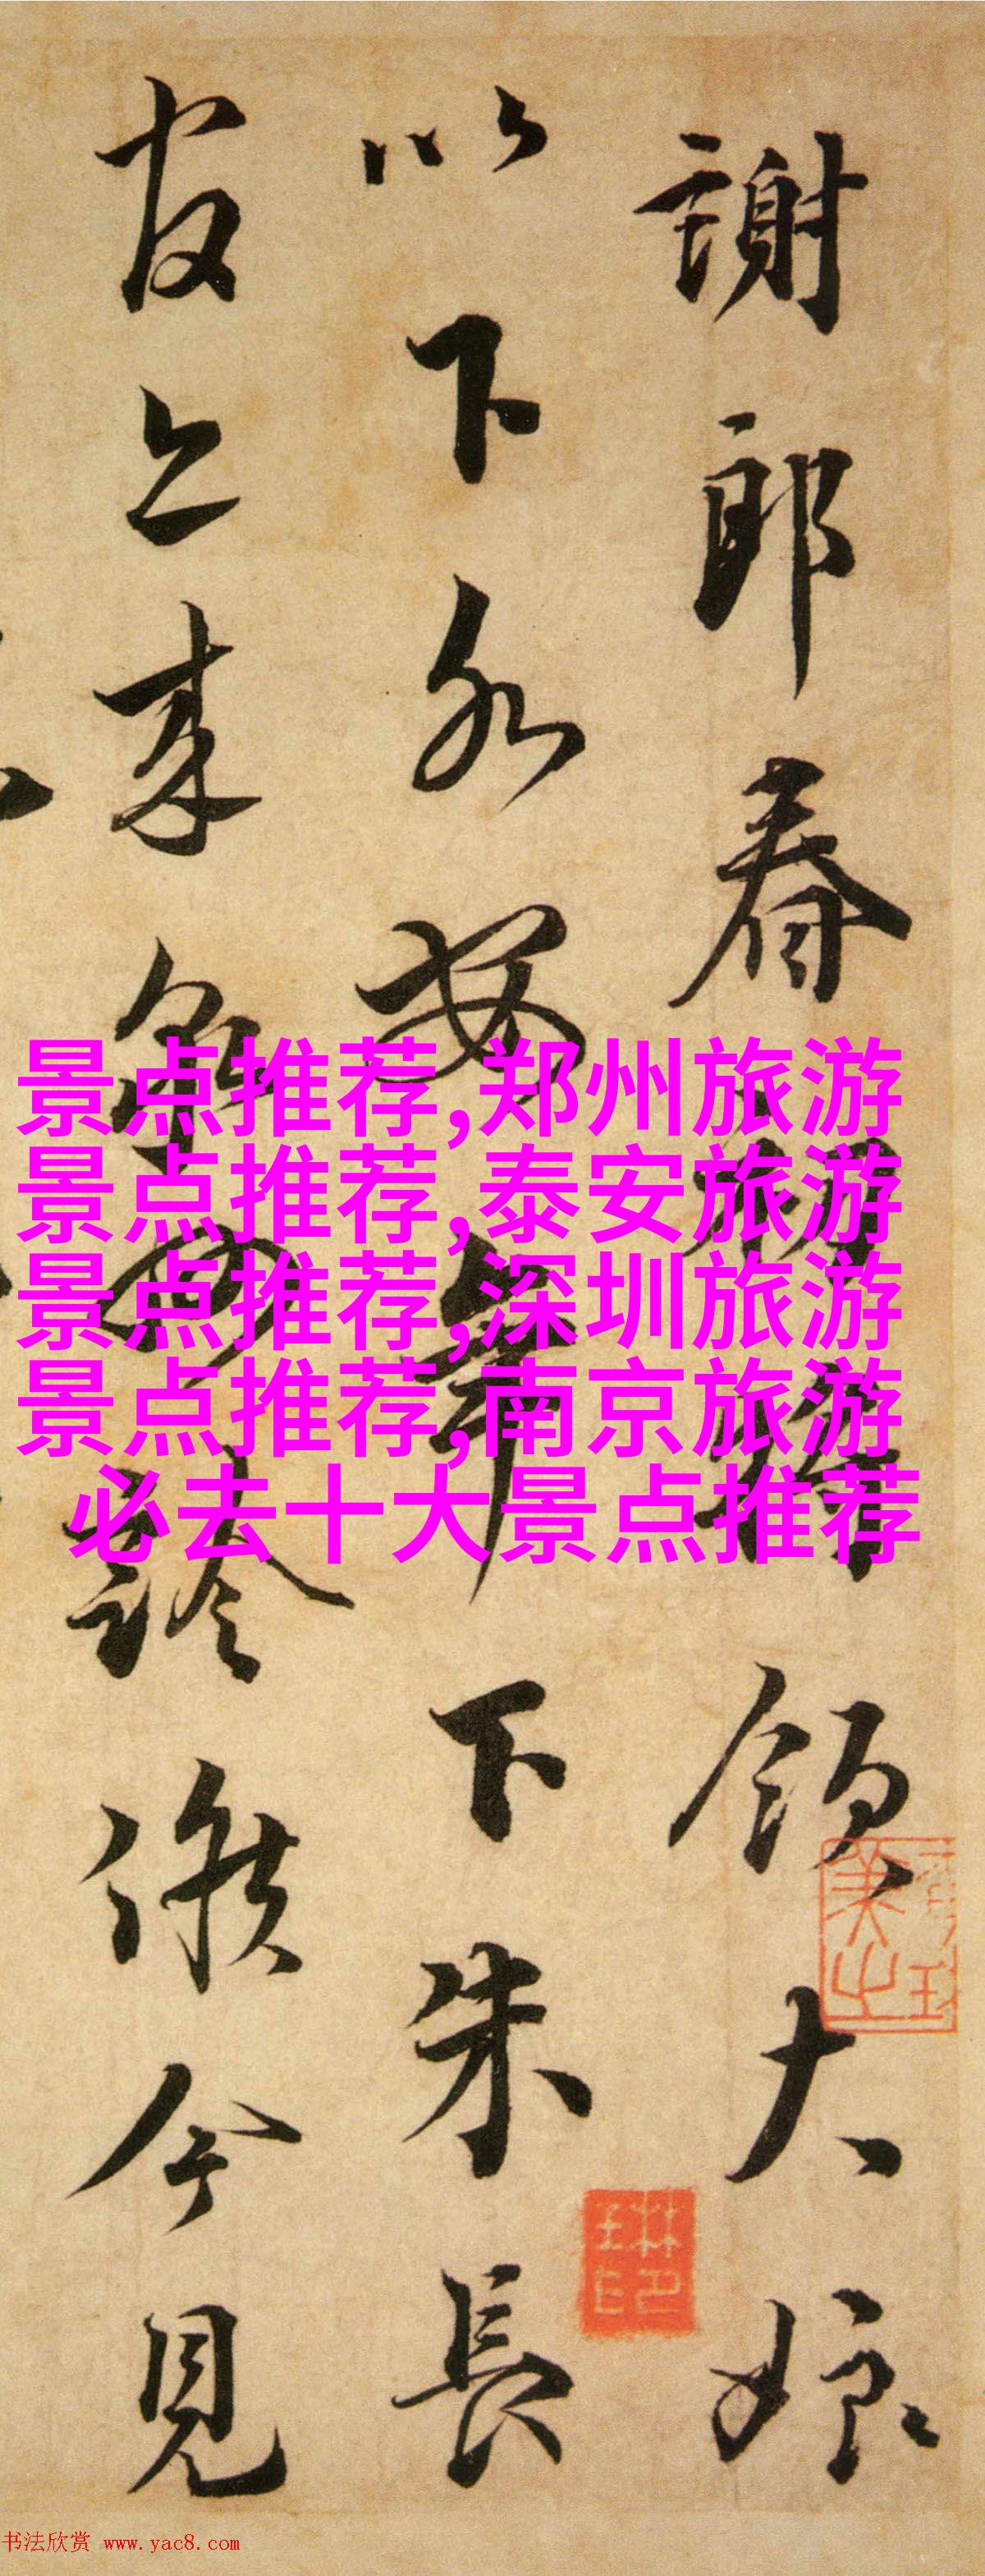 謝郎春
領大娘
以下永安
下朱長
官上来
誨候今見
景点推荐,郑州旅游
景点推荐,泰安旅游
景点推荐,深圳旅游
景点推荐,南京旅游
必去十大景点推荐
书法欣赏 www.yac8.com